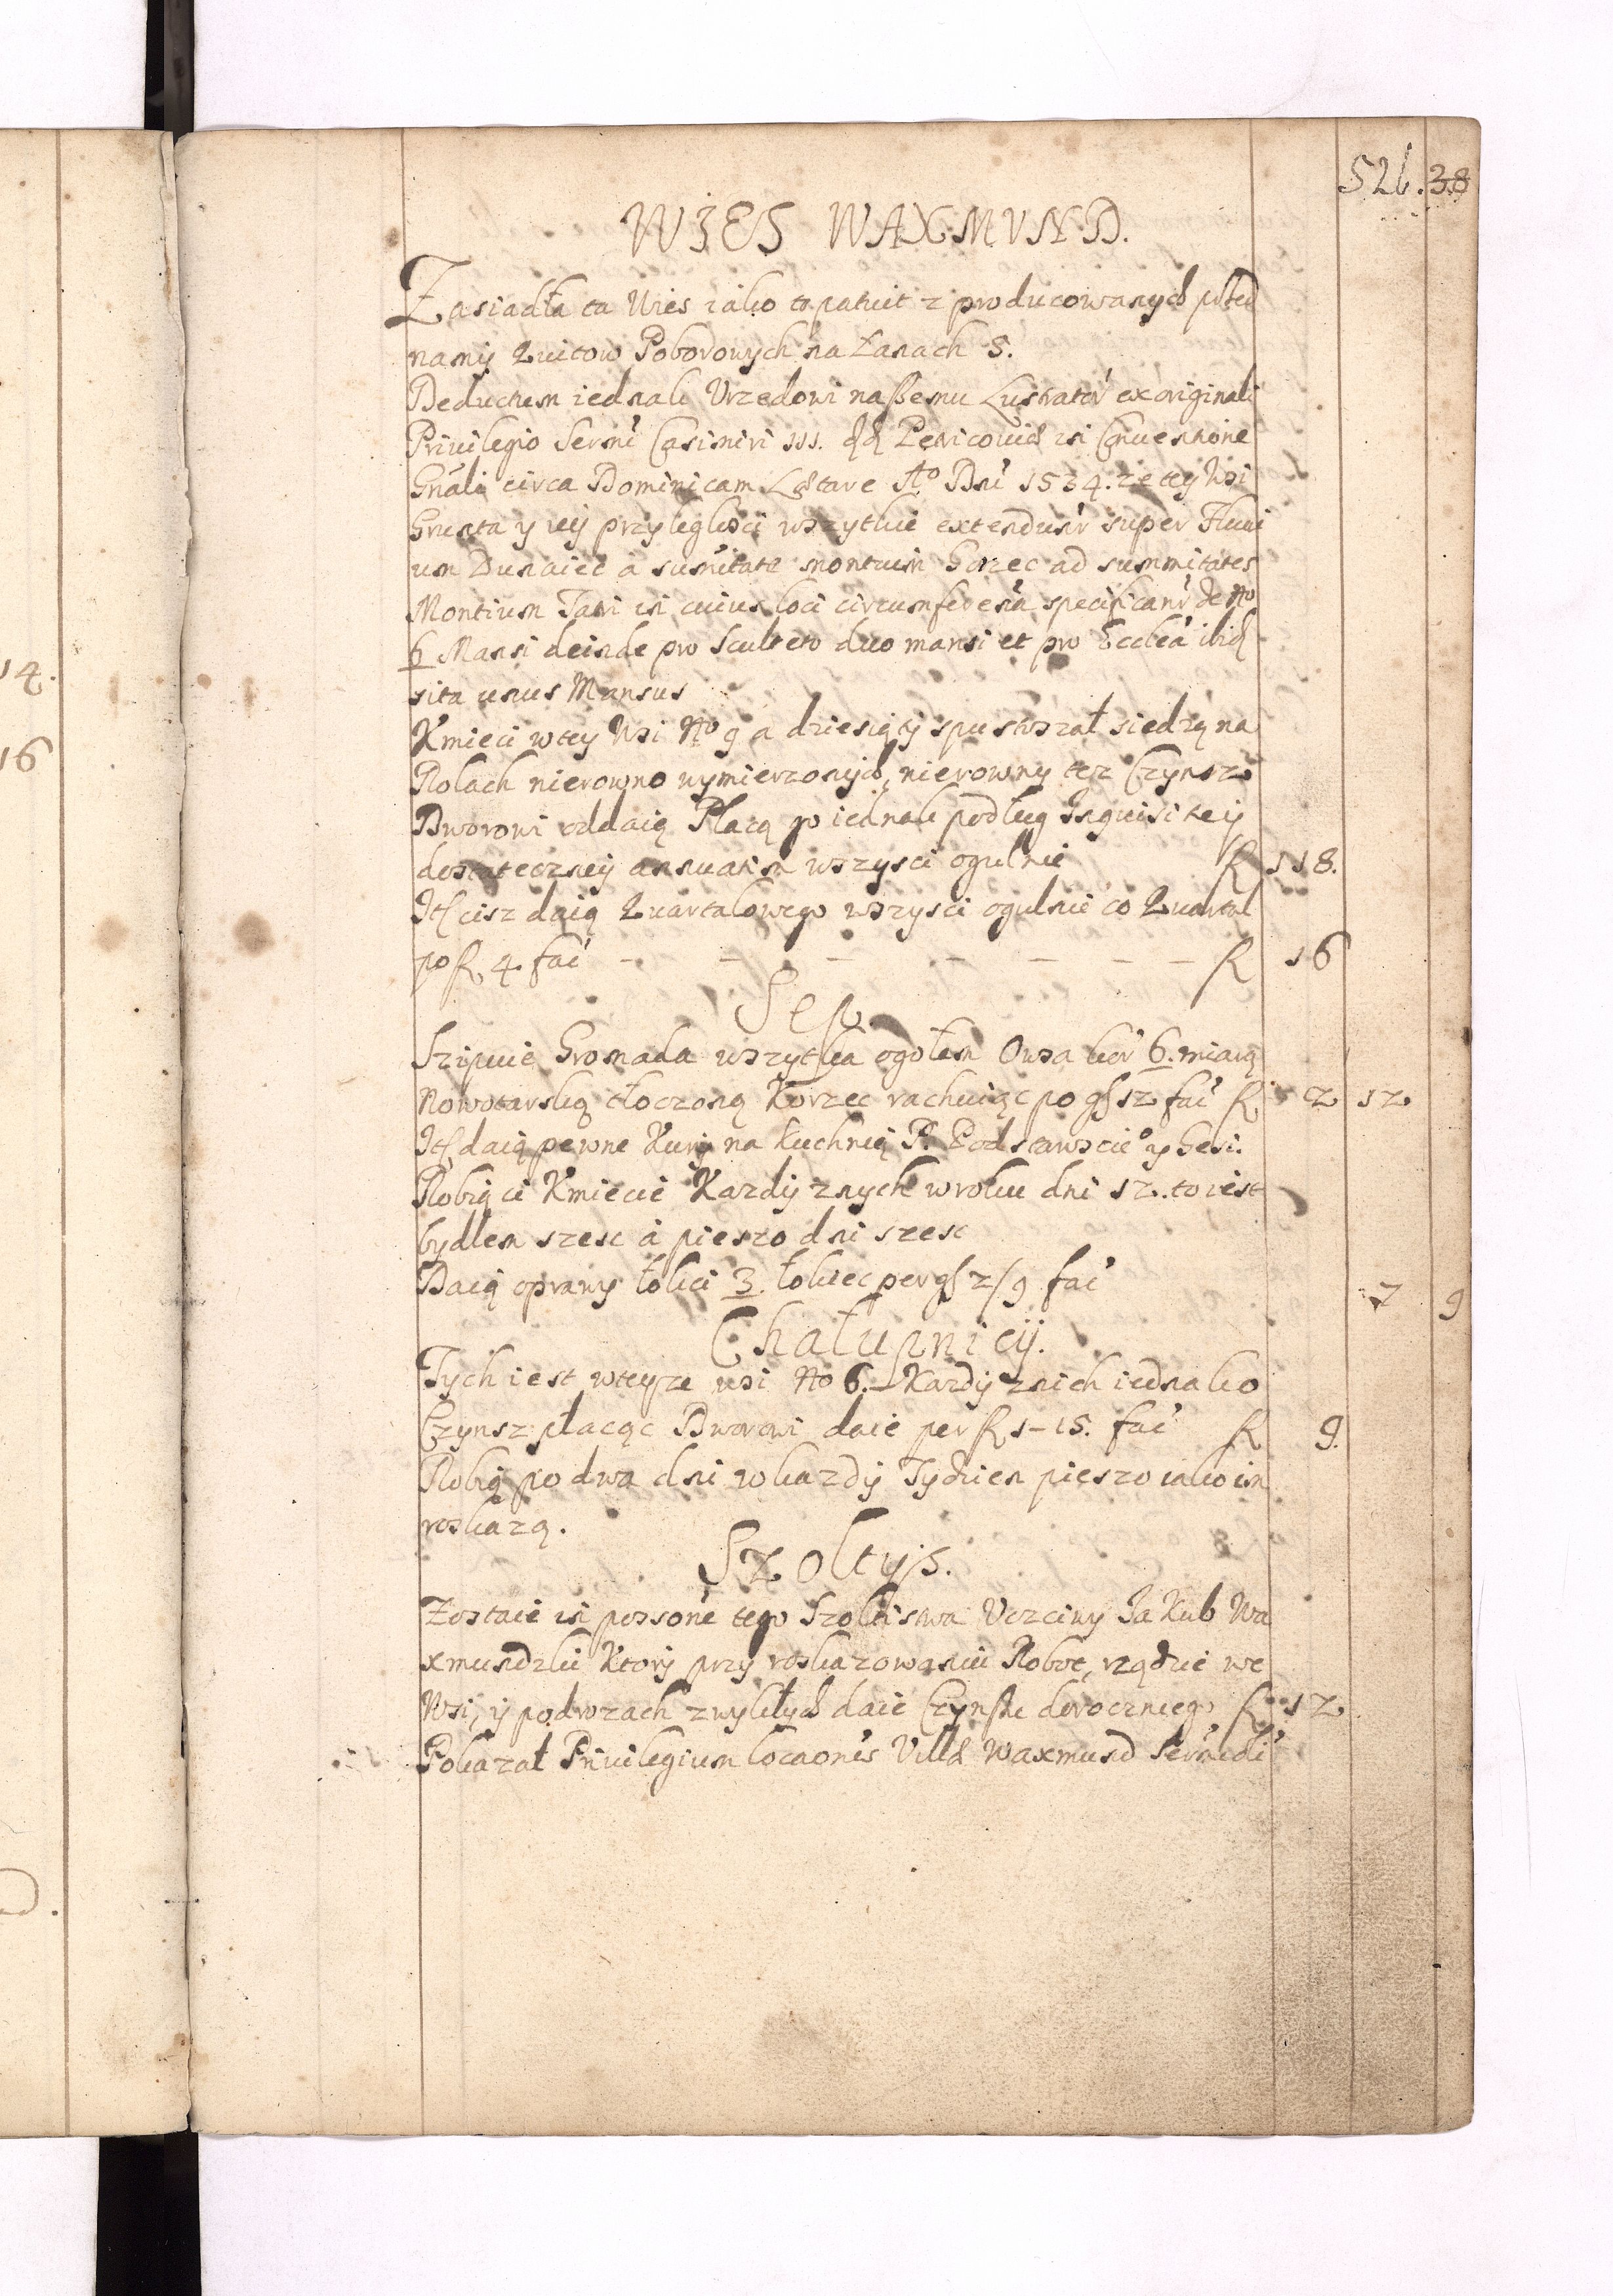 526. 38
WIES WAXMVND.
Zasiadła ta Wies iako to patuit z producowanych przed
namy kwitow Poborowych na Łanach 5.
Deductum iednak Vrzędowi naßemu Lustrator' ex originali
Priuilegio Sermi' Casimiri III. in Conuentione
Gnali circa Dominicam Lætare Ao Dni 1534. ze tey Wsi
Grunta y iey przyległosci wszytkie extendunr super Fluui
um Dunaiec a sumitate montium Gorzec ad summitates
Montium Tatri in cuius loci circumferena specificanr de No
6 Mansi deinde pro Sculteto duo mansi et pro Ecclea ibid
sita unus Mansus
Kmieci w tey Wsi No 9 a dziesiąty spustoszał siedzą na
Rolach nierowno wymierzonych, nierowny tez Czynsz
Dworowi oddaią Płacą go iednak podług Inquisitey
dostateczney annuatim wszysci ogulnie f 118.
It cisz daią Kwartałowego wszysci ogulnie co Kwartał
po f 4 fac' - - - - - - - f 16
Sep.
Szipuie Gromada wszytka ogołem Owsa kor' 6. miarą
Nowotarską tłoczoną Korzec rachuiąc po gs 12 fac' f 2 12
It daią pewne Kury na kuchnię P. Podstarosciego y Gesi.
Robią ci Kmiecie Kazdy z nych w roku dni 12. to iest
bydłem szesc a pieszo dni szesc
Daią oprawy łokci 3. łokiec per gs 2/9 fac' 7 9
Chałupnicy.
Tych iest w teyze wsi No 6. Kazdy z nich iednako
Czynsz płacąc Dworowi daie per f 1-15. fac' f 9.
Robią po dwa dni w kazdy Tydzien pieszo iako im
roskazą.
Szoltys.
Zostaie in possone tego Szoltistwa Vczciwy Jakub Wa
xmundzki Ktory przy roskazowaniu Robot, rządzie we
Wsi, y podrozach zwykłych daie Czynßu dorocznego f 12
Pokazał Priuilegium locaonis Villæ Waxmund
14.
16